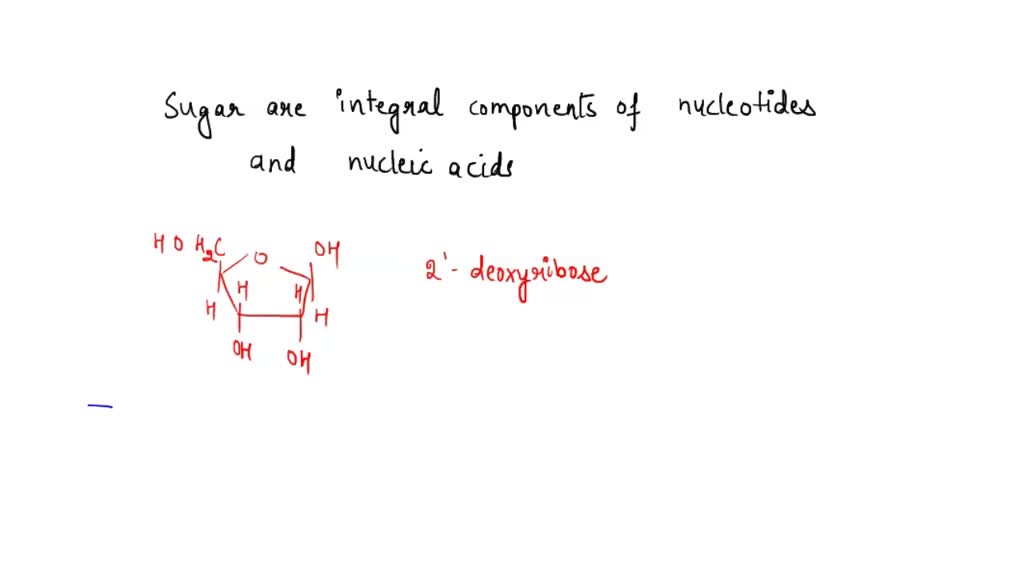 Sugar are integral components of nucleotides
and nucleic acids
HO H₂C O OH
2'- deoxyribose
H H
H H
OH OH